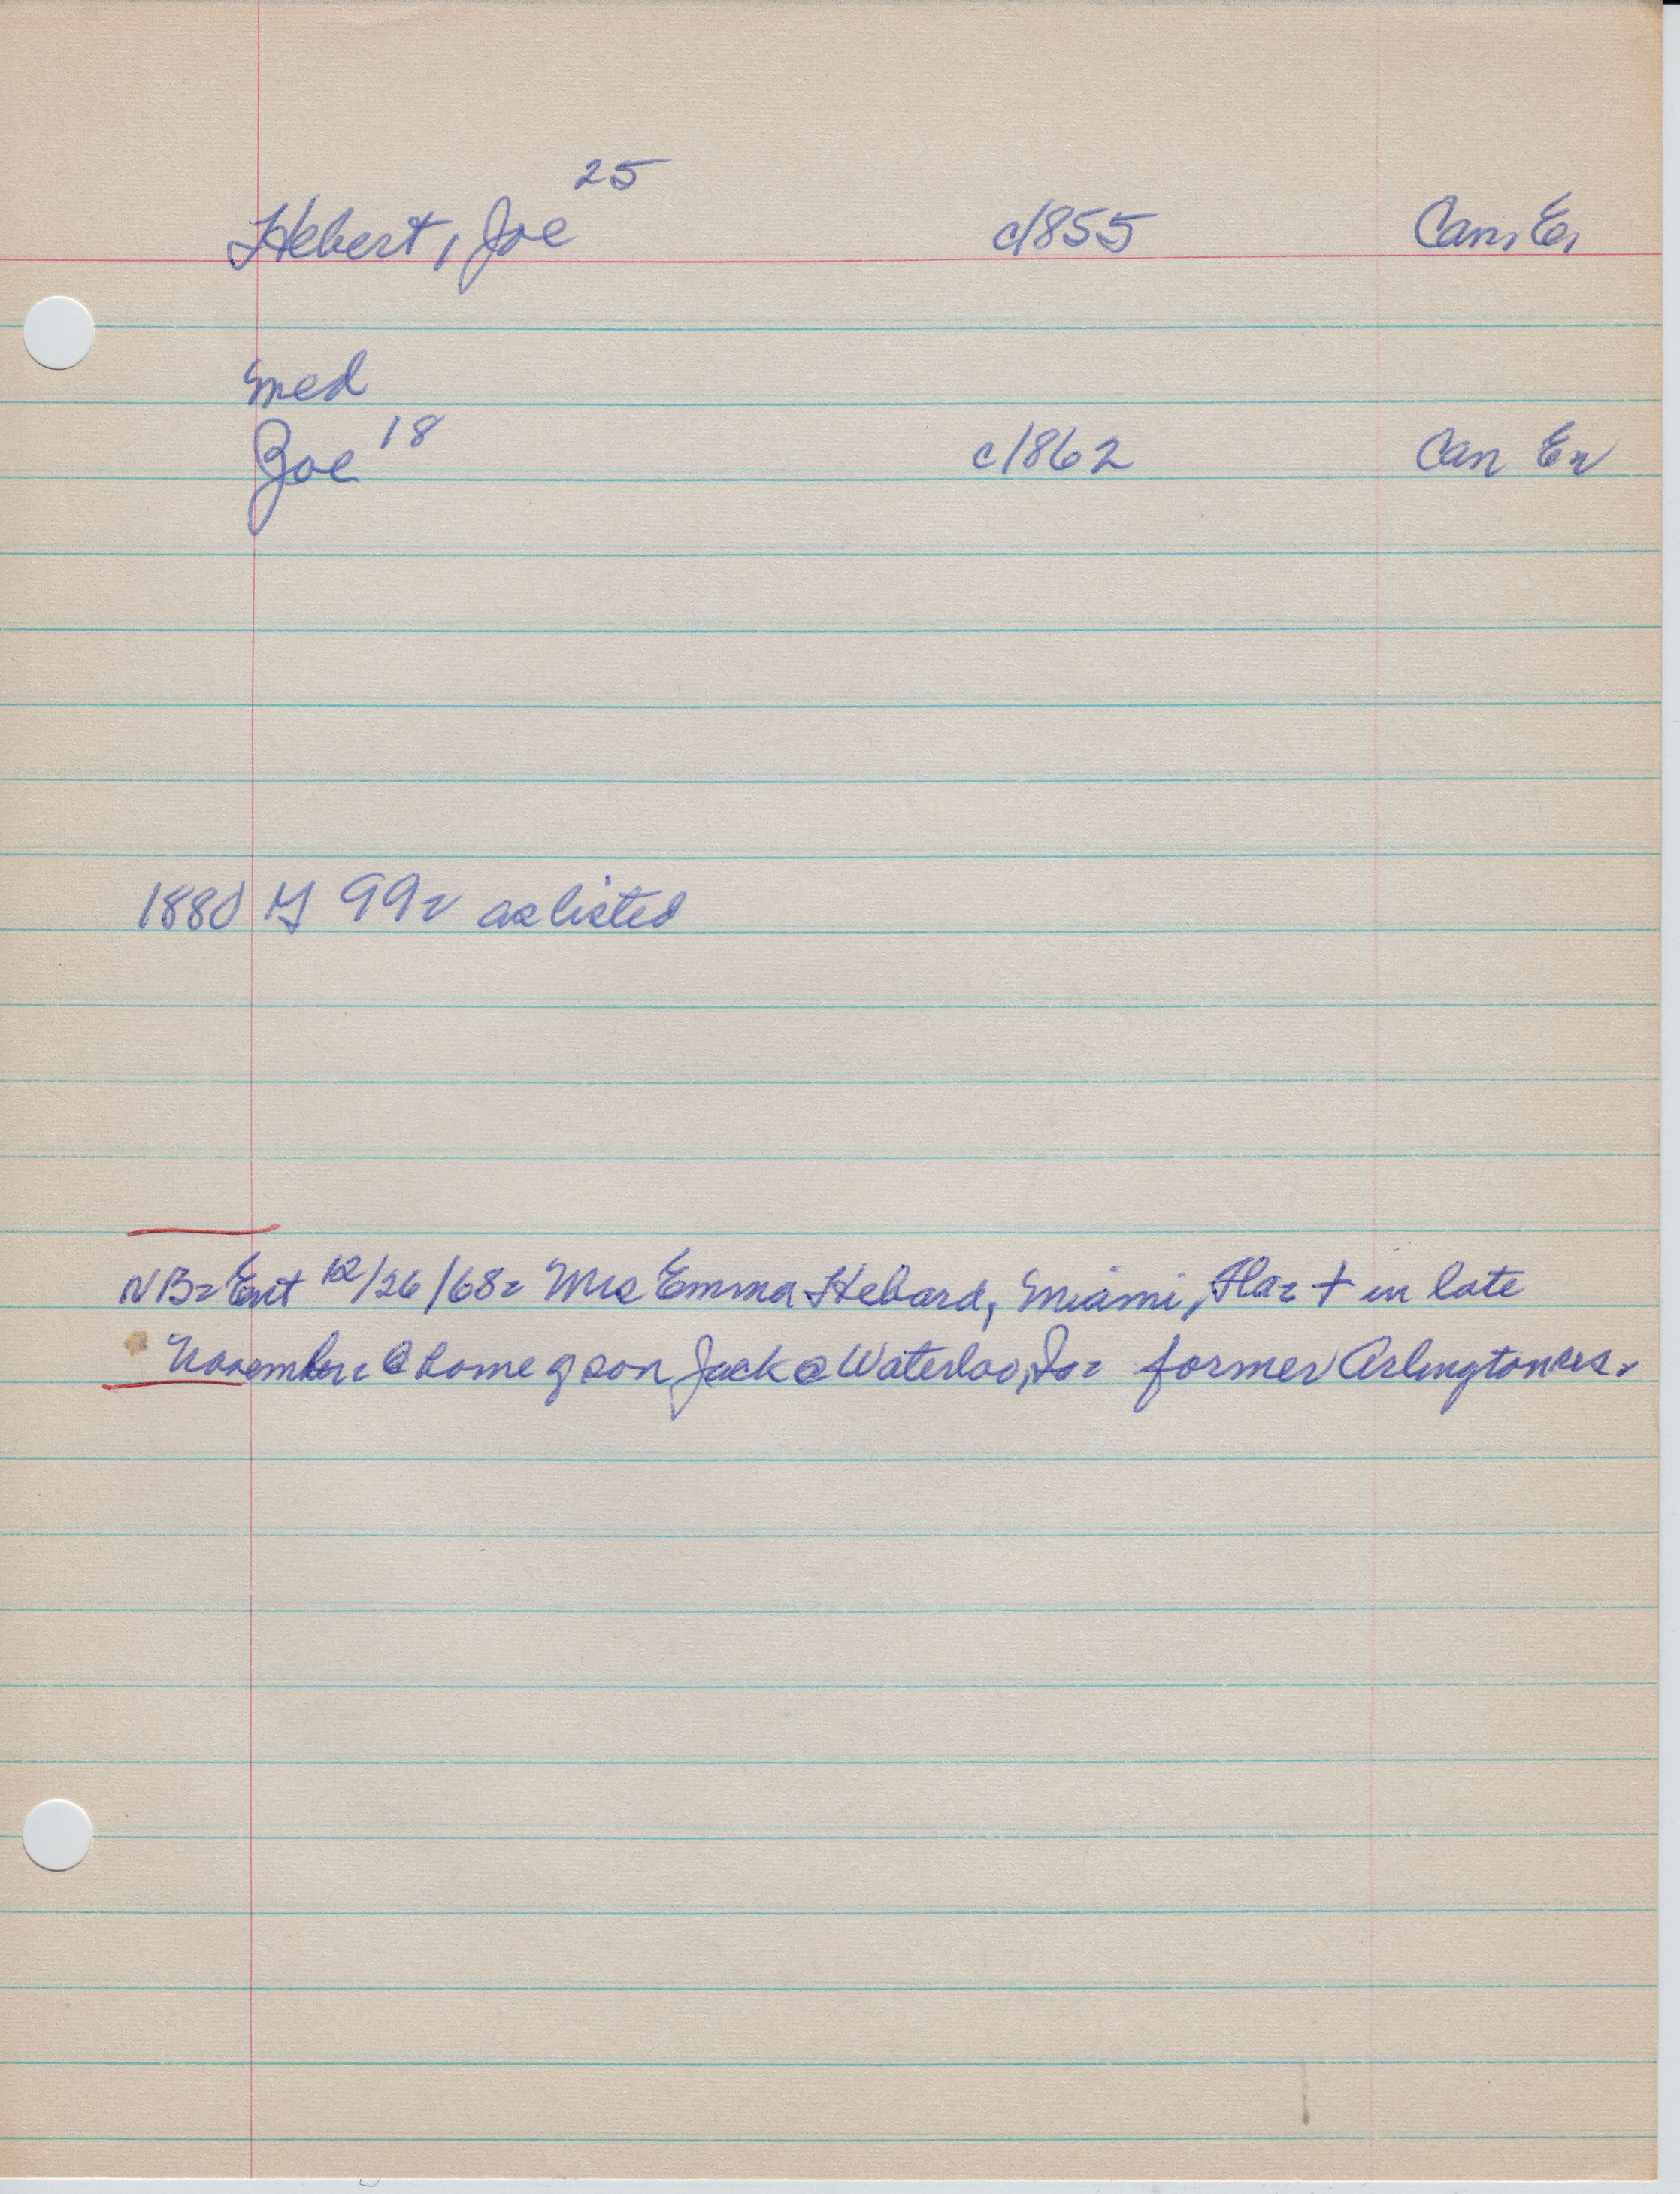 Hebert, Joe 25 c1855 Can, En
med
Zoe 18 c1862 Can En
1880 99r as listed
NB= Ent 12/26/68= Mrs Emma Hebard, Miami, Fla= + in late
November= @ home of son Jack @ Waterloo, Ia= former Arlingtonites.